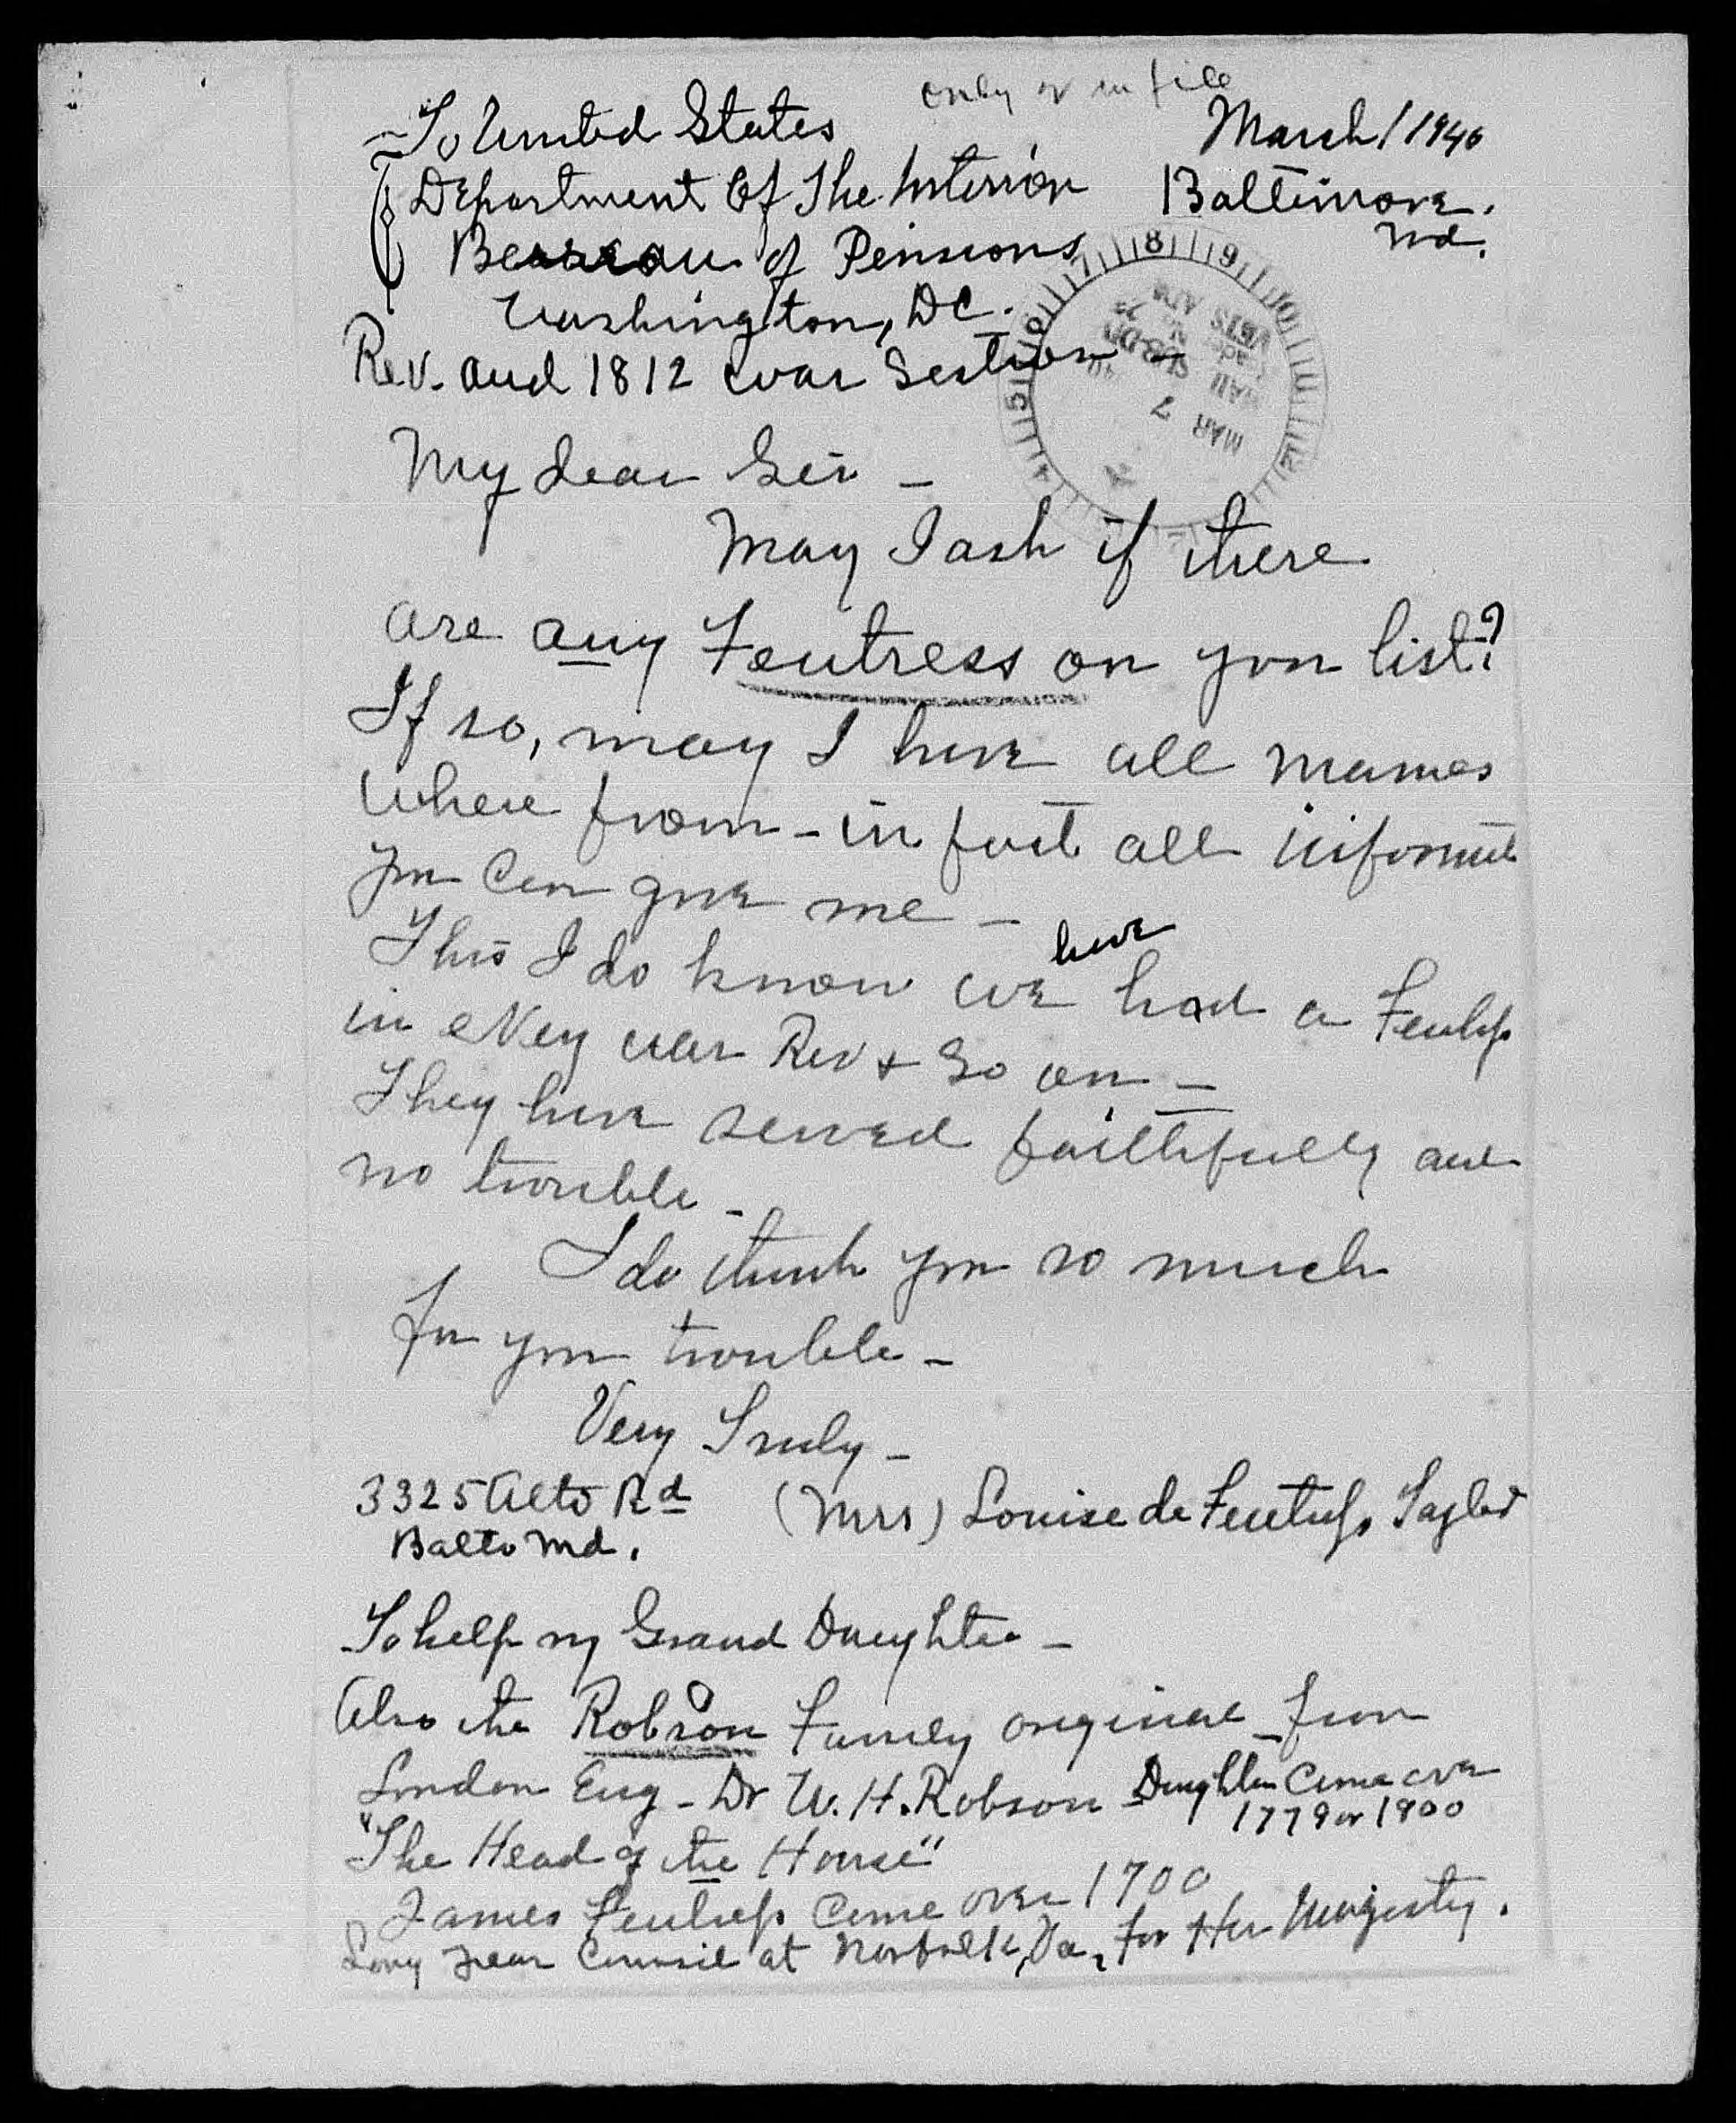 only in file
To United States
March 1 1940
Department Of The Interior
Baltimore.
Md.
Bureau of Pensions
Washington, DC.
Rev. and 1812 war Section -
5 6 7 8 9 10 11 12
MAR 7
My dear Sir -
May I ask if there
are any Fentress on your list?
If so, may I have all names
where from - in fact all informat
you can give me -
This I do know we have had a Fentress
in evey war Rev + So on -
They have served faithfully and
no trouble -
I do thank you so much
for your trouble -
Very Truly -
3325 Alto Rd
(Mrs) Louise de Fentress Taylor
Balto Md.
To help my Grand Daughter -
Also the Robson Family original from
London Eng - Dr W. H. Robson Daughter came over
1779 or 1800
"The Head of the House"
James Fentress came over 1700
Long year Council at Norfolk, Va, for Her Majesty.